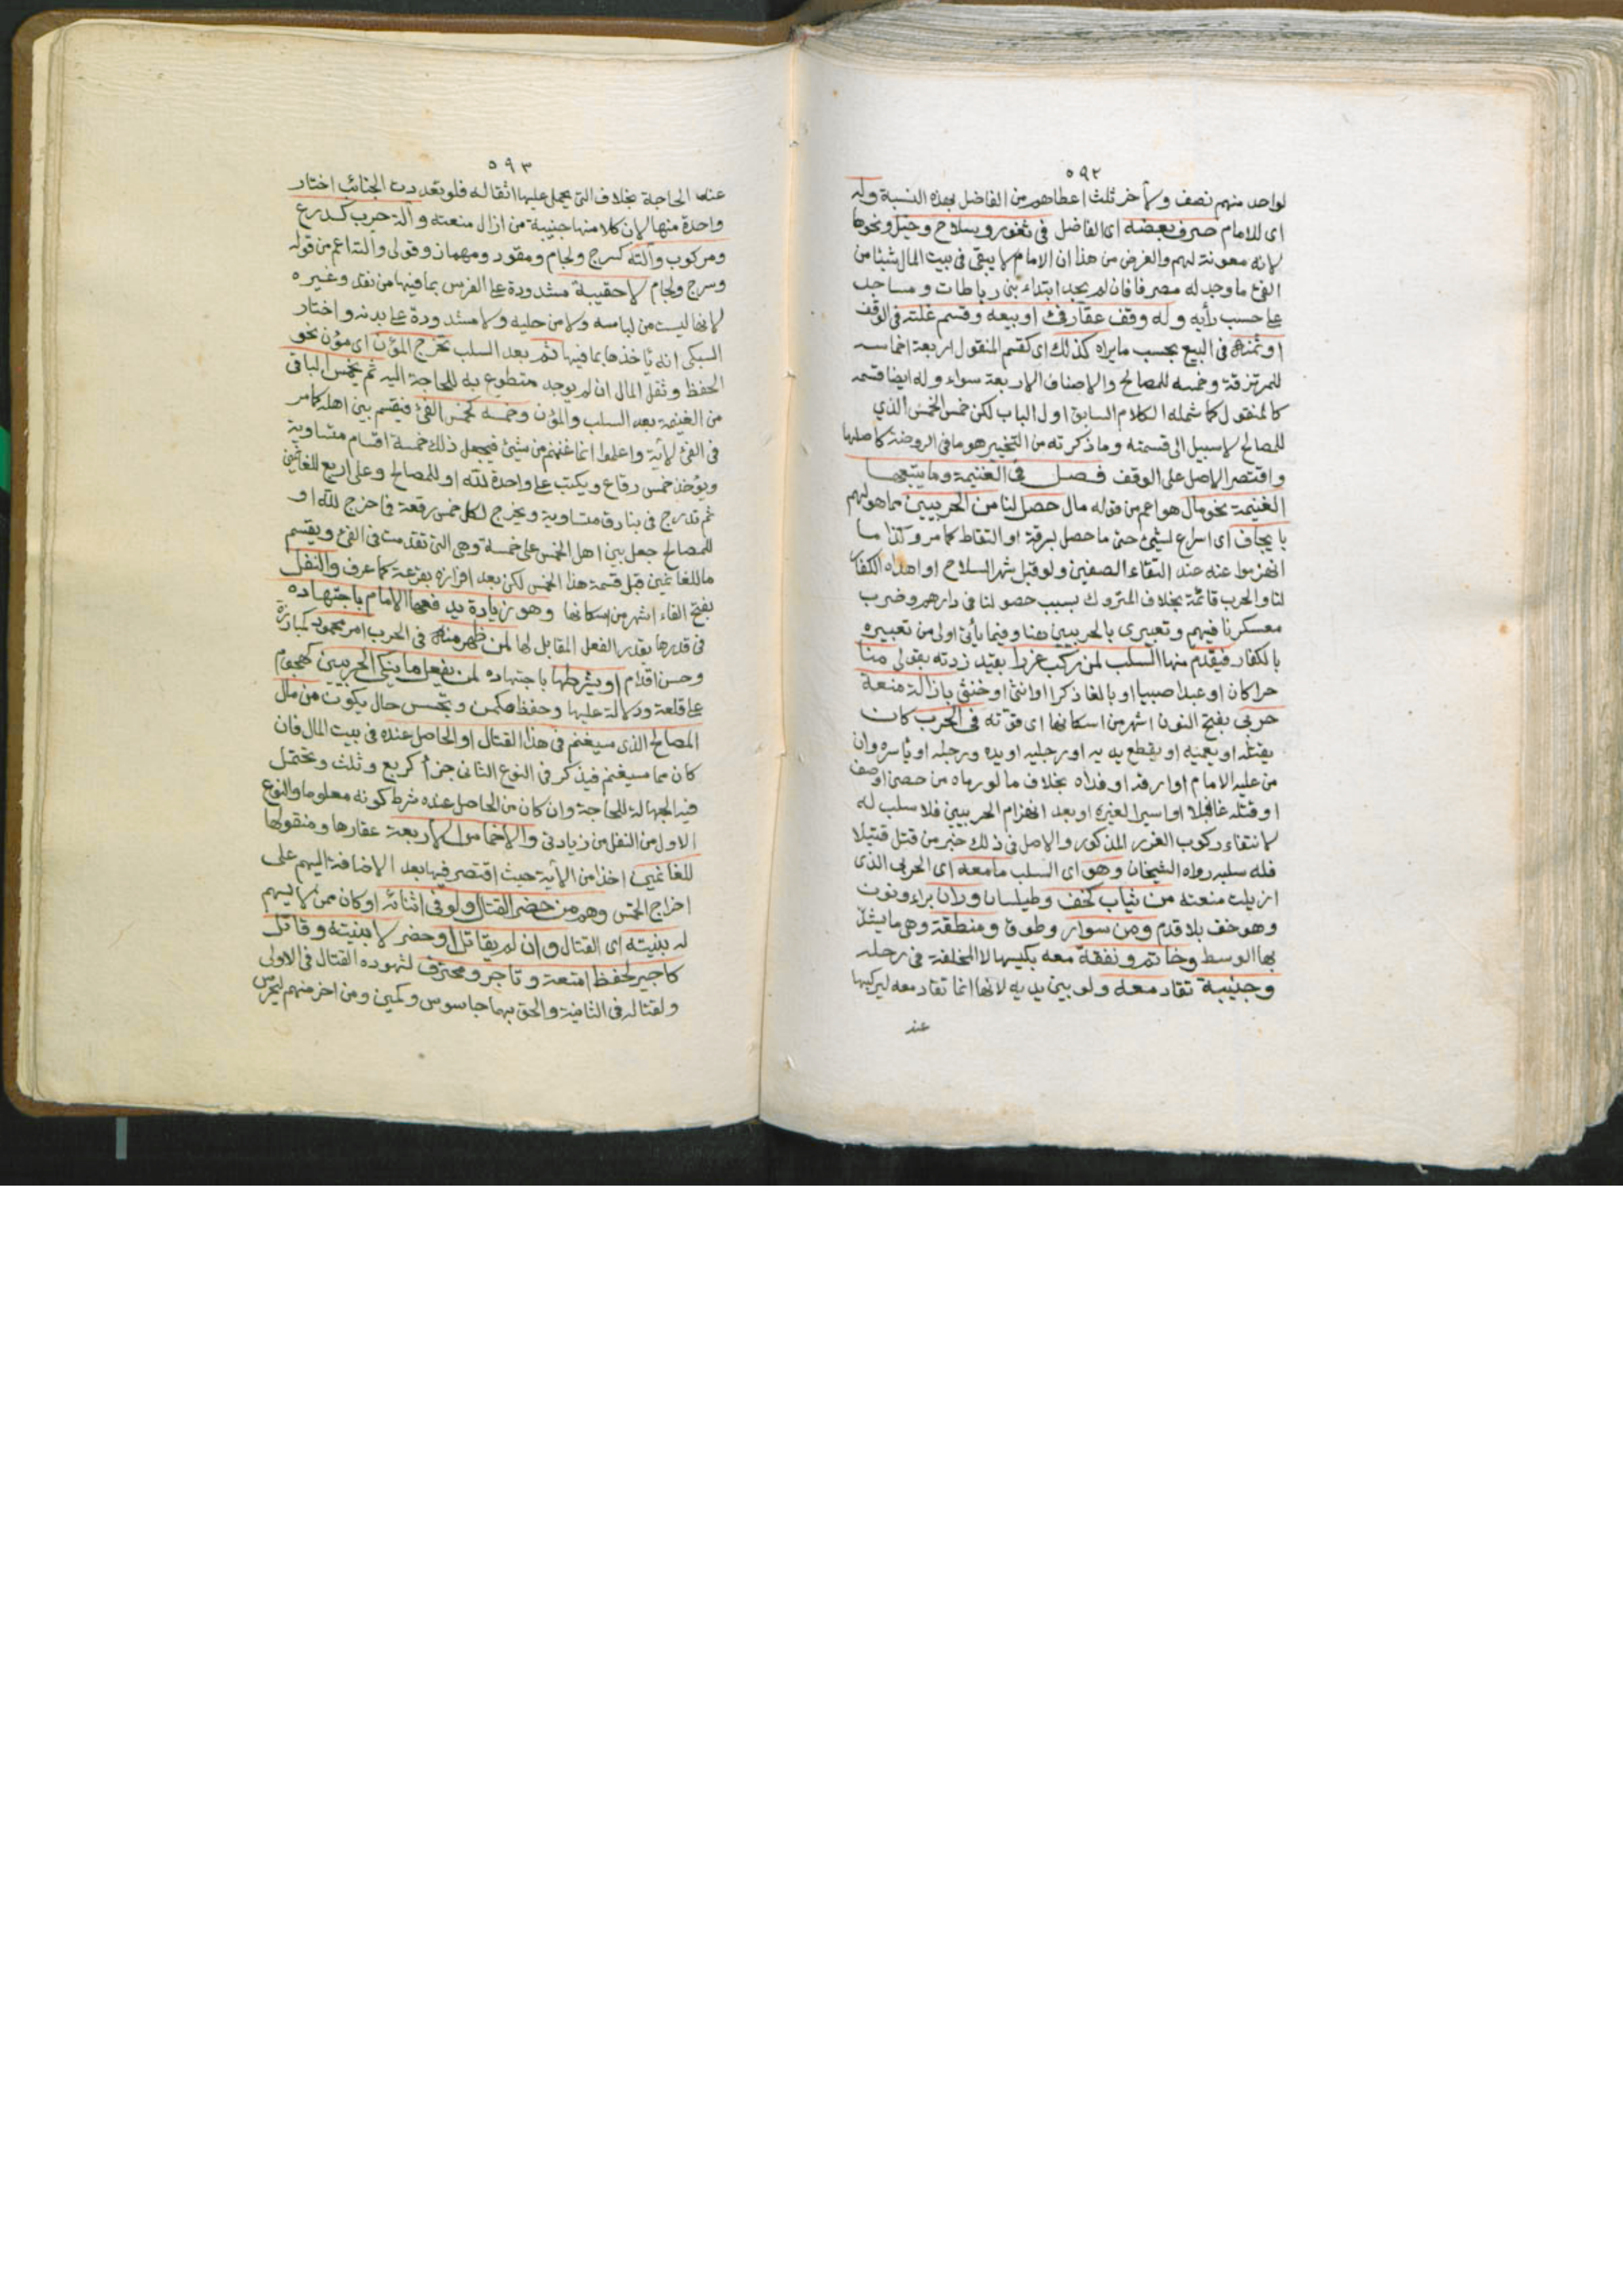 ٥٩٢
لواحد منهم نصف ولآخر ثلث اعطاهم من الفاضل بهذه النسبة وله
اى للامام صرف بعضه اى الفاضل فى ثغور وسلاح وخيل ونحوها
لانه معونة لهم والغرض من هذا ان الامام لا يبقى فى بيت المال شيئا من
الفئ ما وجد له مصرفا فان لم يجد ابتداء بنى رباطات ومساجد
على حسب رأيه وله وقف عقار فئ او بيعه وقسم غلته فى الوقف
او ثمنه فى البيع بحسب ما يراه كذلك اى كقسم المنقول اربعة اخماسه
للمرتزقة وخمسه للمصالح والاصناف الاربعة سواء وله ايضا قسمه
كالمنقول كما شمله الكلام السابق اول الباب لكن خمس الخمس الذي
للمصالح لا سبيل الى قسمته وما ذكرته من التخيير هو ما فى الروضة كاصلها
واقتصر الاصل على الوقف فصل فى الغنيمة وما يتبعها
الغنيمة نحو مال هو اعم من قوله مال حصل لنا من الحربيين مما هو لهم
بايجاف اى اسراع لشئ حتى ما حصل بسرقة او التقاط كما مر وكذا ما
انهزموا عنه عند التقاء الصفين ولو قبل شهر السلاح او اهداه الكفار
لنا والحرب قائمة بخلاف المتروك بسبب حصولنا فى دارهم وضرب
معسكرنا فيهم وتعبيرى بالحربيين هنا وفيما يأتى اولى من تعبيره
بالكفار فيقدم منها السلب لمن ركب غررا بقيد زدته بقولى منا
حرا كان او عبدا صبيا او بالغا ذكرا او انثى او خنثى بازالة منعة
حربى بفتح النون اشهر من اسكانها اى قوته فى الحرب كان
يقتله او يعميه او يقطع يديه او رجليه او يده ورجله او ياسره وان
من عليه الامام او ارقه او فداه بخلاف ما لو رماه من حصن او صف
او قتله غافلا او اسيرا لغيره او بعد انهزام الحربيين فلا سلب له
لانتفاء ركوب الغرر المذكور والاصل فى ذلك خبر من قتل قتيلا
فله سلبه رواه الشيخان وهو اى السلب ما معه اى الحربى الذى
ازيلت منعته من ثياب كخف وطيلسان وران براء ونون
وهو خف بلا قدم ومن سوار وطوق ومنطقة وهى ما يشد
بها الوسط وخاتم ونفقة معه بكيسها لا المخلفة فى رحله
وجنيبة تقاد معه ولو بين يديه لانها انما تقاد معه ليركبها
عند
٥٩٣
عند الحاجة بخلاف التى يحمل عليها اثقاله فلو تعددت الجنائب اختار
واحدة منها لان كلا منها جنيبة من ازال منعته وآلة حرب كدرع
ومركوب وآلته كسرج ولجام ومقود ومهماز وقولى وآلته اعم من قوله
وسرج ولجام لا حقيبة مشدودة على الفرس بما فيها من نقد وغيره
لانها ليست من لباسه ولا من حليه ولا مشدودة على بدنه واختار
السبكى انه يأخذها بما فيها ثم بعد السلب تخرج المؤن اى مؤن نحو
الحفظ ونقل المال ان لم يوجد متطوع به للحاجة اليه ثم يخمس الباقى
من الغنيمة بعد السلب والمؤن وخمسه كخمس الفئ فيقسم بين اهله كما مر
فى الفئ لآية واعلموا انما غنمتم من شئ فيجعل ذلك خمسة اقسام متساوية
ويؤخذ خمس رقاع ويكتب على واحدة لله او للمصالح وعلى اربع للغانمين
ثم تدرج فى بنادق متساوية ويخرج لكل خمس رقعة فاخرج لله او
للمصالح جعل بين اهل الخمس على خمسة وهى التى تقدمت فى الفئ ويقسم
ما للغانمين قبل قسمة هذا الخمس لكن بعد افرازه بقرعة كما عرف والنفل
بفتح الفاء اشهر من اسكانها وهو زيادة يدفعها الامام باجتهاده
فى قدرها بقدر الفعل المقابل لها لمن ظهر منه فى الحرب امر محمود كمبارزة
وحسن اقدام او يشرطها باجتهاده لمن يفعل ما ينكى الحربيين كهجوم
على قلعة ودلالة عليها وحفظ مكمن وتجسس حال يكون من مال
المصالح الذى سيغنم فى هذا القتال او الحاصل عنده فى بيت المال فان
كان مما سيغنم فيذكر فى النوع الثانى جزأ كربع وثلث وتحتمل
فيه الجهالة للحاجة وان كان من الحاصل عنده شرط كونه معلوما والنوع
الاول من النفل من زيادتى والاخماس الاربعة عقارها ومنقولها
للغانمين اخذا من الآية حيث اقتصر فيها بعد الاضافة اليهم على
اخراج الخمس وهم من حضر القتال ولو فى اثنائه او كان ممن لا يسهم
له بنيته اى القتال وان لم يقاتل او حضر لا بنيته وقاتل
كاجير لحفظ امتعة وتاجر ومحترف لشهوده القتال فى الاولى
ولقتاله فى الثانية والحق بهما جاسوس وكمين ومن اخر منهم ليحرس